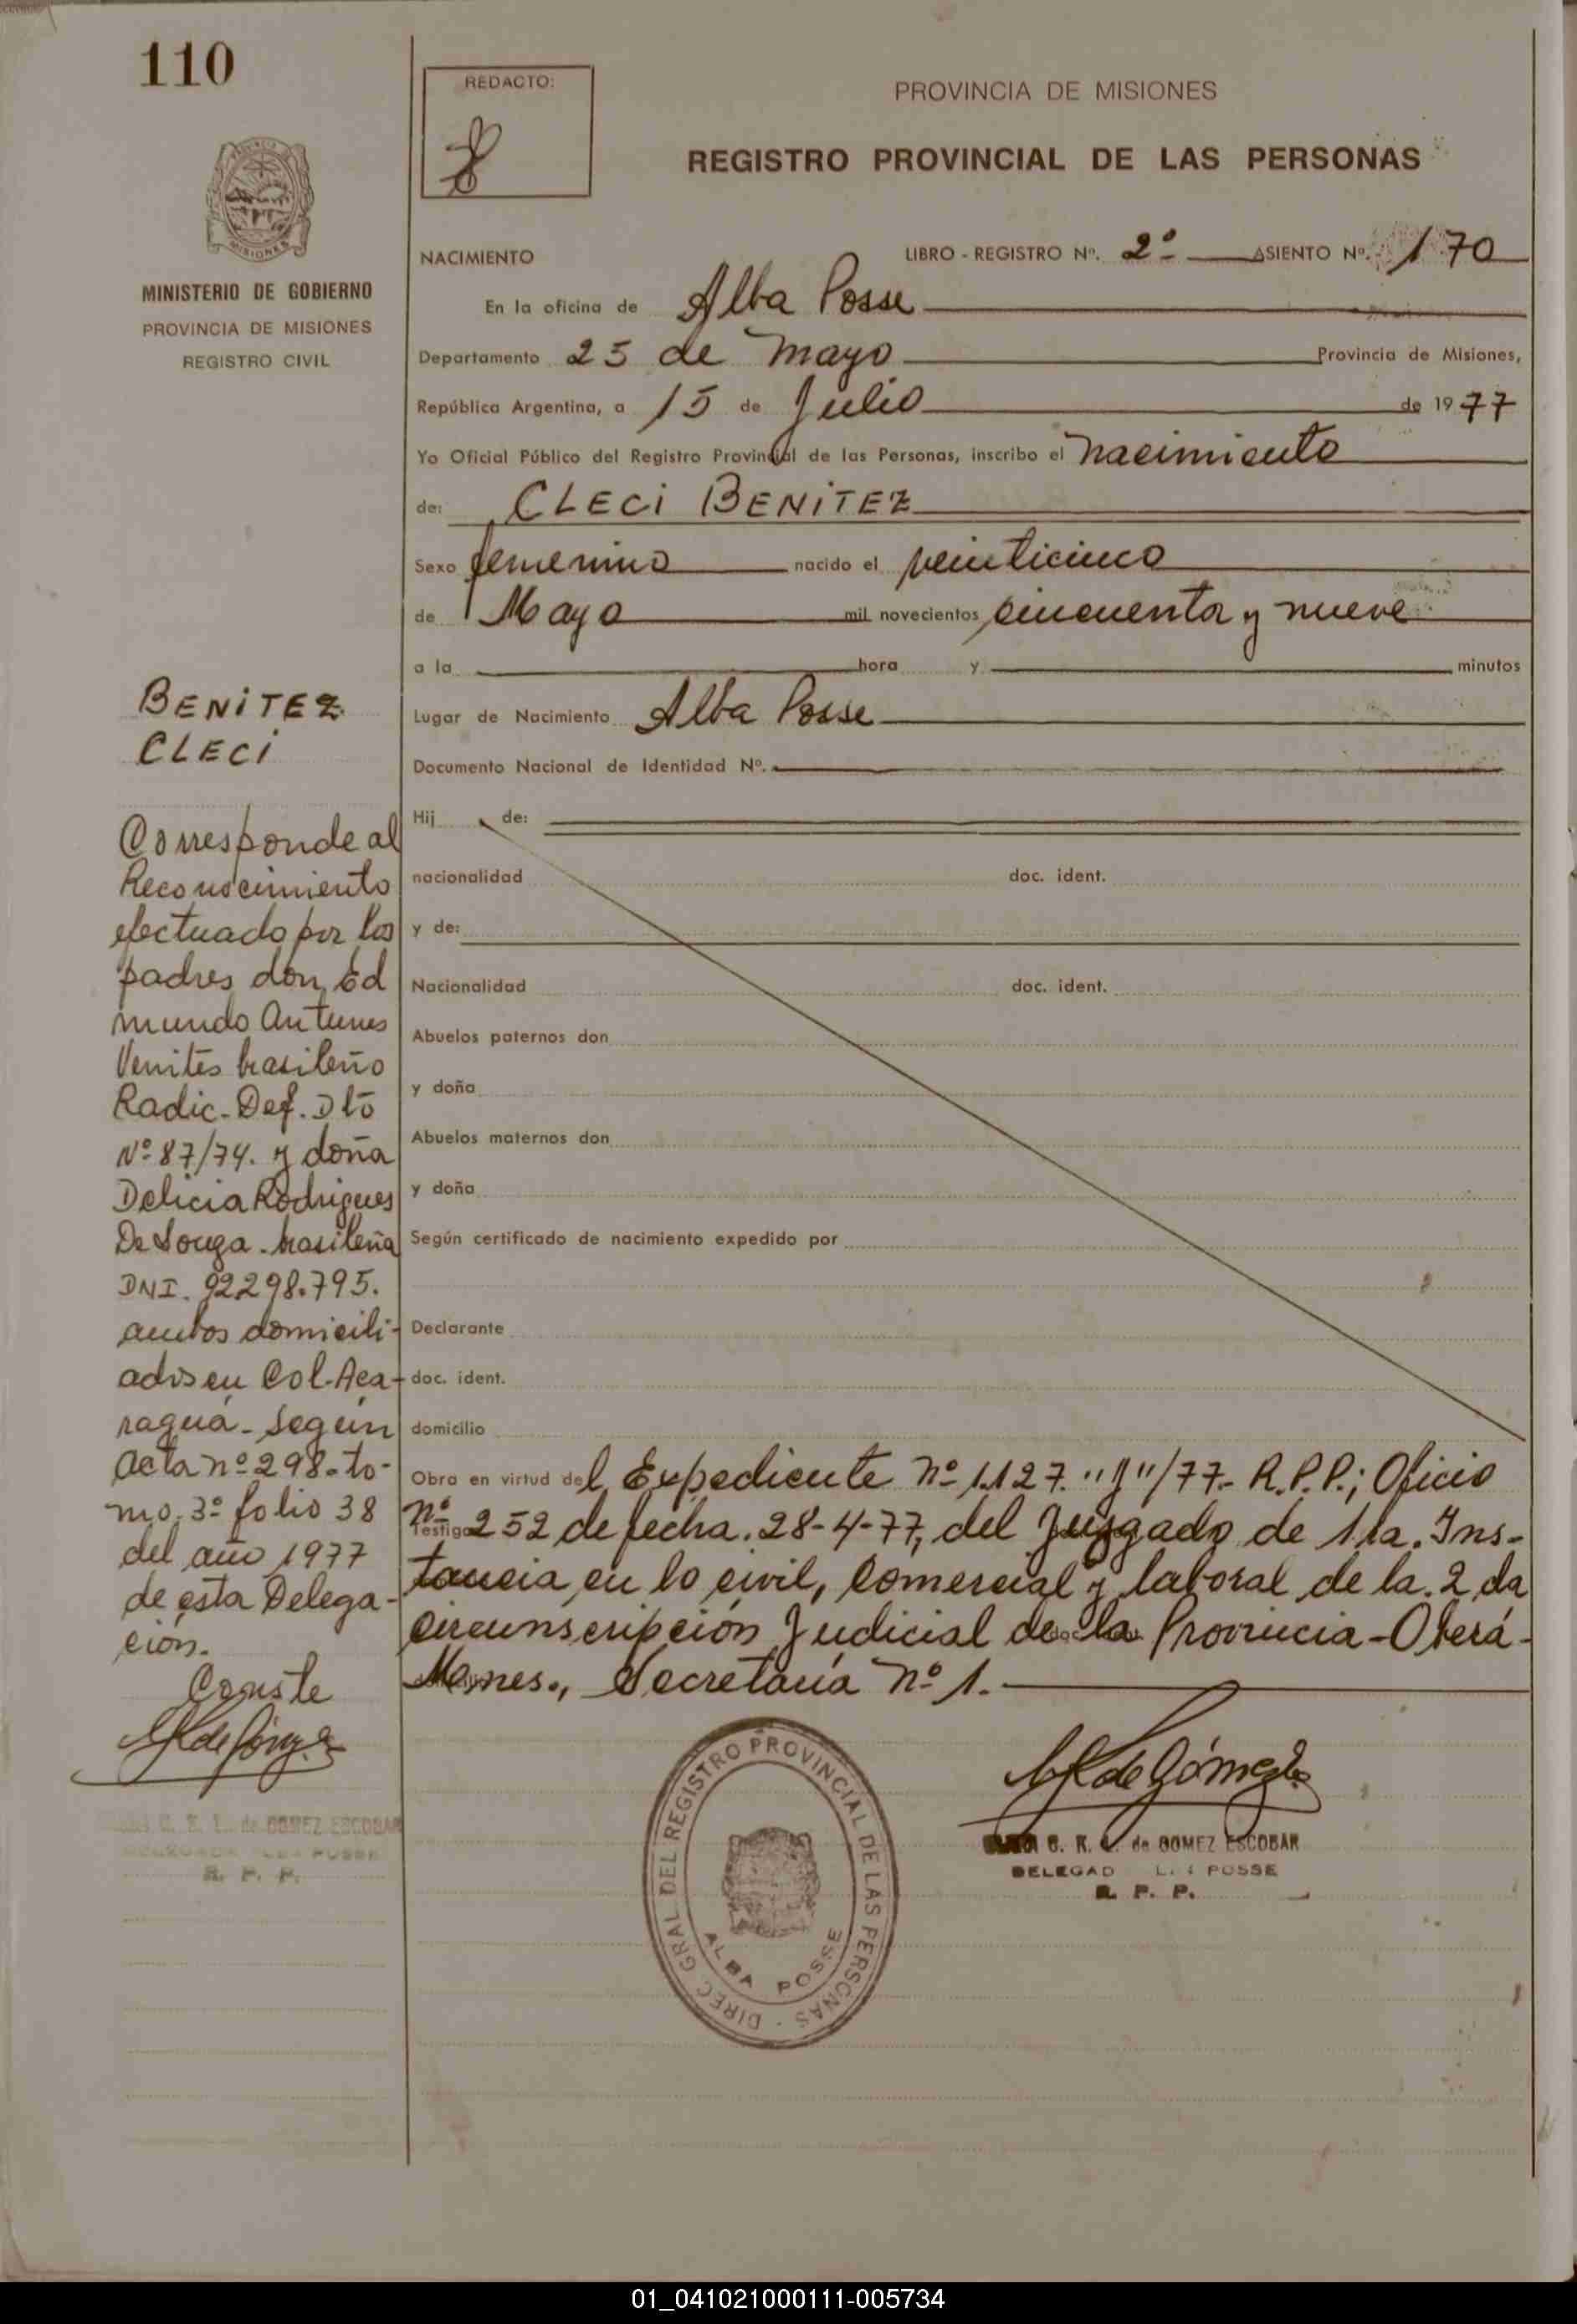 110
REDACTO:
PROVINCIA DE MISIONES
REGISTRO PROVINCIAL DE LAS PERSONAS
MISIONES
MINISTERIO DE GOBIERNO
PROVINCIA DE MISIONES
REGISTRO CIVIL
NACIMIENTO LIBRO - REGISTRO Nº. 2º ASIENTO Nº. 170
En la oficina de Alba Posse
Departamento 25 de Mayo Provincia de Misiones,
República Argentina, a 15 de Julio de 1977
Yo Oficial Público del Registro Provincial de las Personas, inscribo el nacimiento
de: CLECI BENITEZ
Sexo femenino nacido el veinticinco
de Mayo mil novecientos cincuenta y nueve
a la hora y minutos
Lugar de Nacimiento Alba Posse
Documento Nacional de Identidad Nº.
Hij de:
nacionalidad doc. ident.
y de:
Nacionalidad doc. ident.
Abuelos paternos don
y doña
Abuelos maternos don
y doña
Según certificado de nacimiento expedido por
Declarante
doc. ident.
domicilio
Obra en virtud del Expediente nº 1.127. "J"/77.- R.P.P.; Oficio
nº 252 de fecha. 28-4-77, del Juzgado de 1ra. Ins-
tancia en lo civil, Comercial y laboral de la. 2da
circunscripción Judicial de la Provincia-Oberá-
Msnes., Secretaría nº 1.
BENITEZ
CLECI
Corresponde al
Reconocimiento
efectuado por los
padres don, Ed
mundo Antunes
Venites brasileño
Radic-Def. Dtō
Nº 87/74. y doña
Delicia Rodrigues
De Souza. brasileña
DNI. 92298.795.
ambos domicili-
ados en Col. Aca-
raguá. según
acta nº 298. to-
mo. 3º folio 38
del año 1977
de esta Delega-
ción.
Conste
C. R. L. de GOMEZ ESCOBAR
POSSE
R. P. P.
DIREC GRAL DEL REGISTRO PROVINCIAL DE LAS PERSONAS
ALBA POSSE
de Gómez
de GOMEZ ESCOBAR
DELEGAD POSSE
R. P. P.
01_041021000111-005734